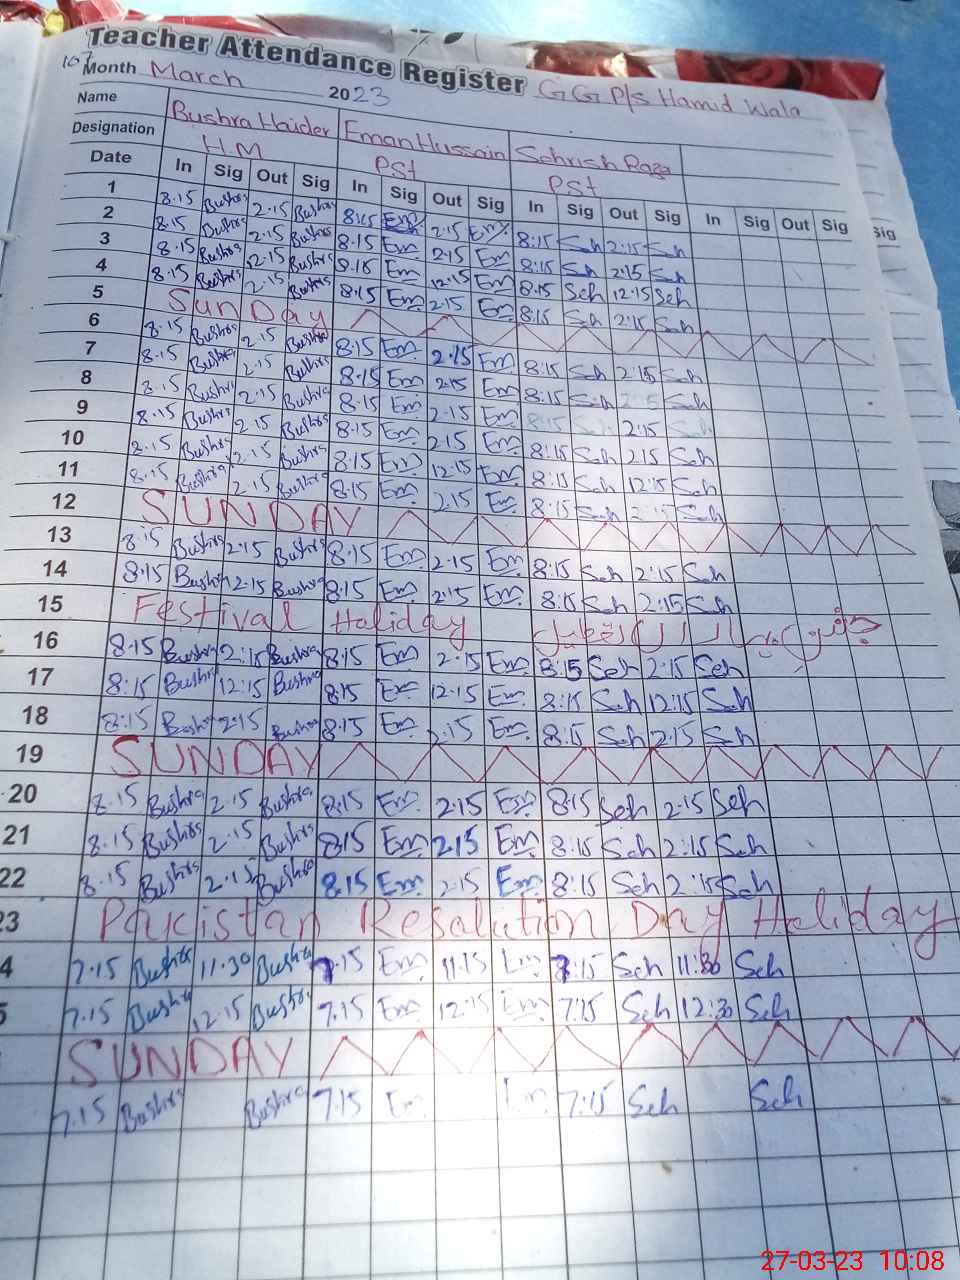 Teacher Attendance Register G G P/s Hamid Wala
107
Month March 2023
Name Bushra Haider Eman Hussain Sehrish Raza
Designation H.M PSt PSt
Date In Sig Out Sig In Sig Out Sig In Sig Out Sig In Sig Out Sig
Sig
1 8.15 Bushra 2.15 Bushra 8:15 Em 2.15 Em 8:15 Sch 2:15 Sch
2 8.15 Bushra 2.15 Bushra 8.15 Em 2.15 Em 8:15 Sch 2:15 Sch
3 8.15 Bushra 12.15 Bushra 8.15 Em 12.15 Em 8:15 Sch 12:15 Sch
4 8.15 Bushra 2.15 Bushra 8.15 Em 2.15 Em 8:15 Sch 2:15 Sch
5 SunDay
6 8.15 Bushra 2.15 Bushra 8:15 Em 2.15 Em 8:15 Sch 2:15 Sch
7 8.15 Bushra 2.15 Bushra 8.15 Em 2.15 Em 8:15 Sch Sch
8 8.15 Bushra 2.15 Bushra 8.15 Em 2.15 Em 8:15 Sch 2:15 Sch
9 8.15 Bushra 2.15 Bushra 8.15 Em 2.15 Em 8:15 Sch 2.15 Sch
10 8.15 Bushra 12.15 Bushra 8.15 Em 12.15 Em 8:15 Sch 12:15 Sch
11 8.15 Bushra 2.15 Bushra 8.15 Em 2.15 Em 8:15 Sch Sch
12 SUNDAY
13 8:15 Bushra 2.15 Bushra 8.15 Em 2.15 Em 8:15 Sch 2:15 Sch
14 8.15 Bushra 2.15 Bushra 8.15 Em 2.15 Em 8:15 Sch 2:15 Sch
15 Festival Holiday
16 8.15 Bushra 2.15 Bushra 8.15 Em 2.15 Em 8:15 Sch 2:15 Sch
17 8:15 Bushra 12:15 Bushra 8.15 Em 12.15 Em 8:15 Sch 12:15 Sch
18 8:15 Bushra 2.15 Bushra 8.15 Em 2.15 Em 8:15 Sch 2.15 Sch
19 SUNDAY
20 8.15 Bushra 2.15 Bushra 8.15 Em 2.15 Em 8:15 Sch 2.15 Sch
21 8.15 Bushra 2.15 Bushra 8.15 Em 2.15 Em 8:15 Sch 2:15 Sch
22 8.15 Bushra 2.15 Bushra 8.15 Em 2.15 Em 8:15 Sch 2:15 Sch
23 Pakistan Resolution Day Holiday
4 7.15 Bushra 11.30 Bushra 7.15 Em 11.15 Em 7:15 Sch 11:30 Sch
5 7.15 Bushra 12.15 Bushra 7.15 Em 12.15 Em 7:15 Sch 12:30 Sch
SUNDAY
7.15 Bushra Bushra 7.15 Em Em 7:15 Sch Sch
27-03-23 10:08